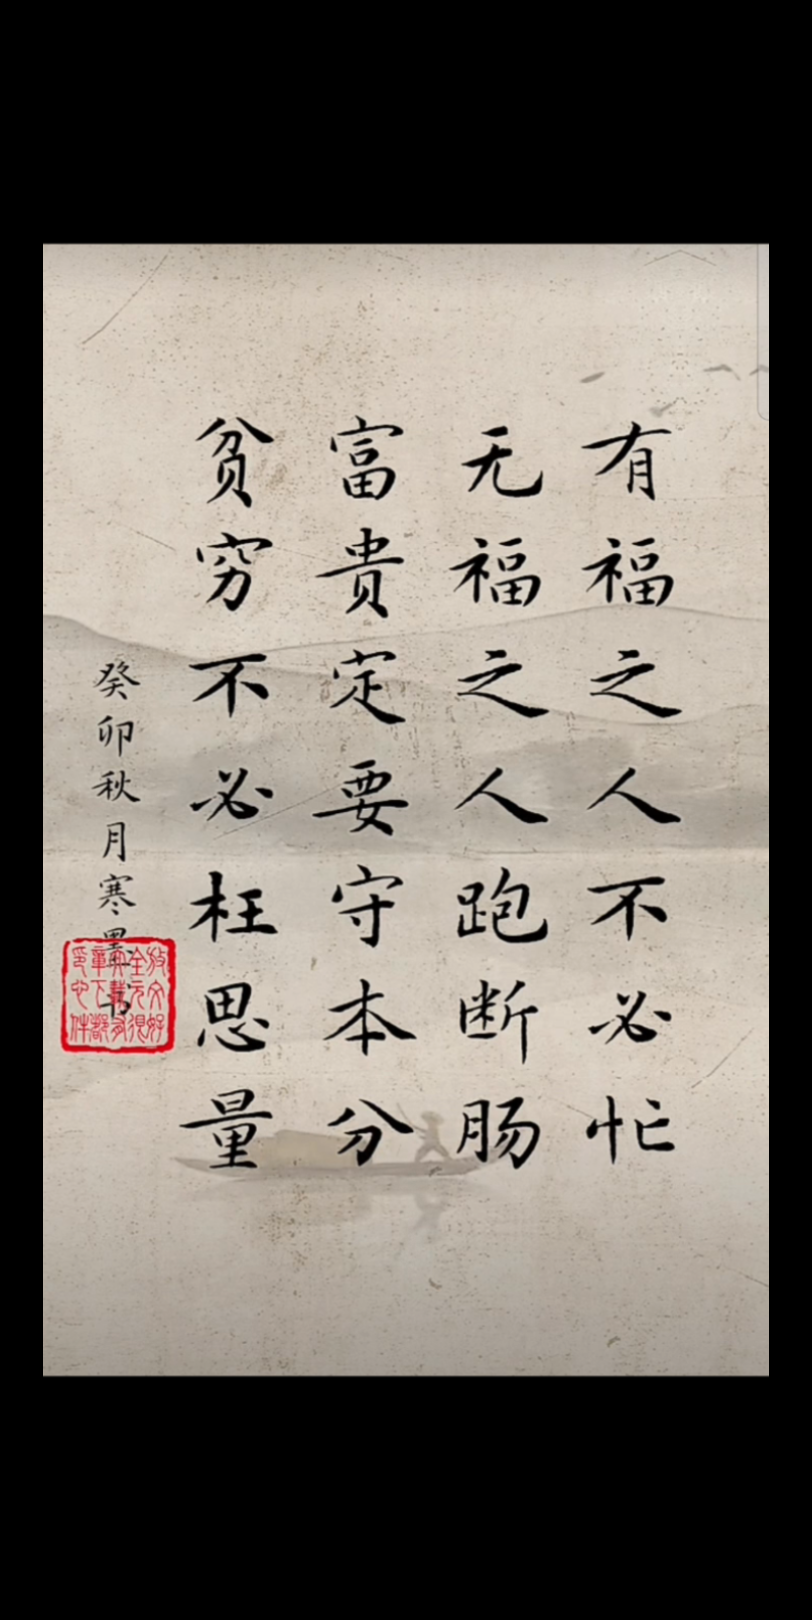 有福之人不必忙
无福之人跑断肠
富贵定要守本分
贫穷不必枉思量
癸卯秋月寒墨书